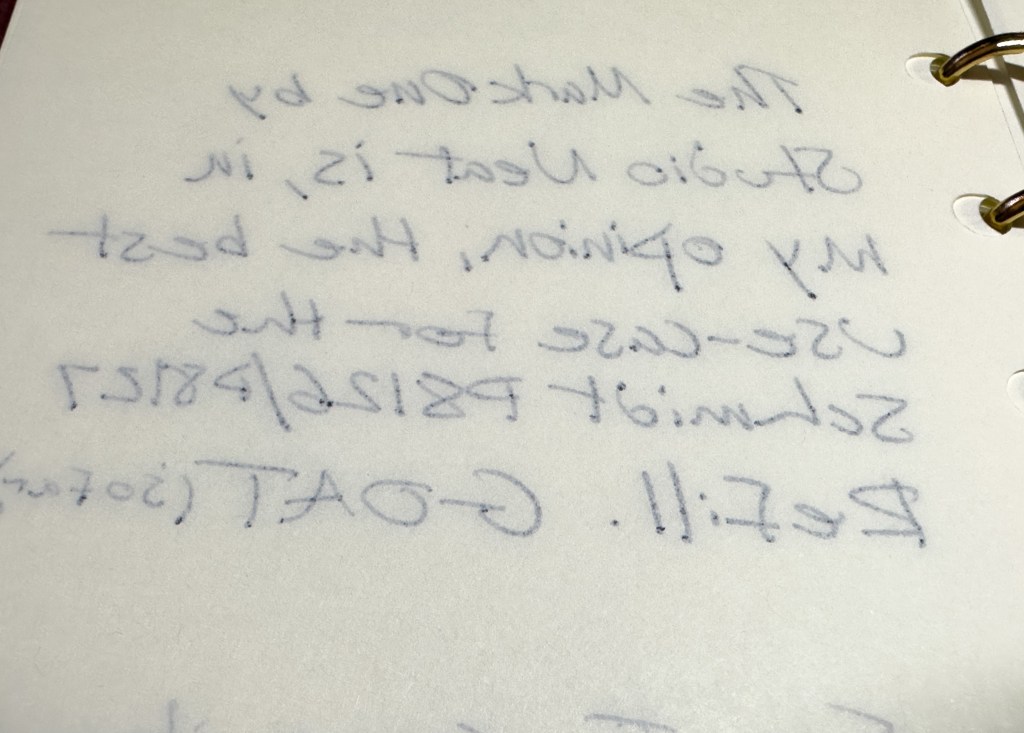 The Mark One by
Studio Neat is, in
my opinion, the best
use-case for the
Schmidt P8126/P8127
Refill. GOAT (so far)